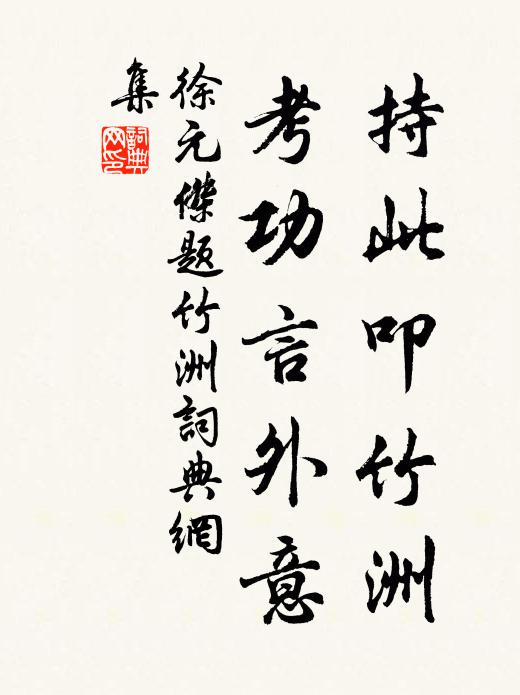 持此叩竹洲
考功言外意
徐元傑題竹洲詞典網
集
詞典
网印